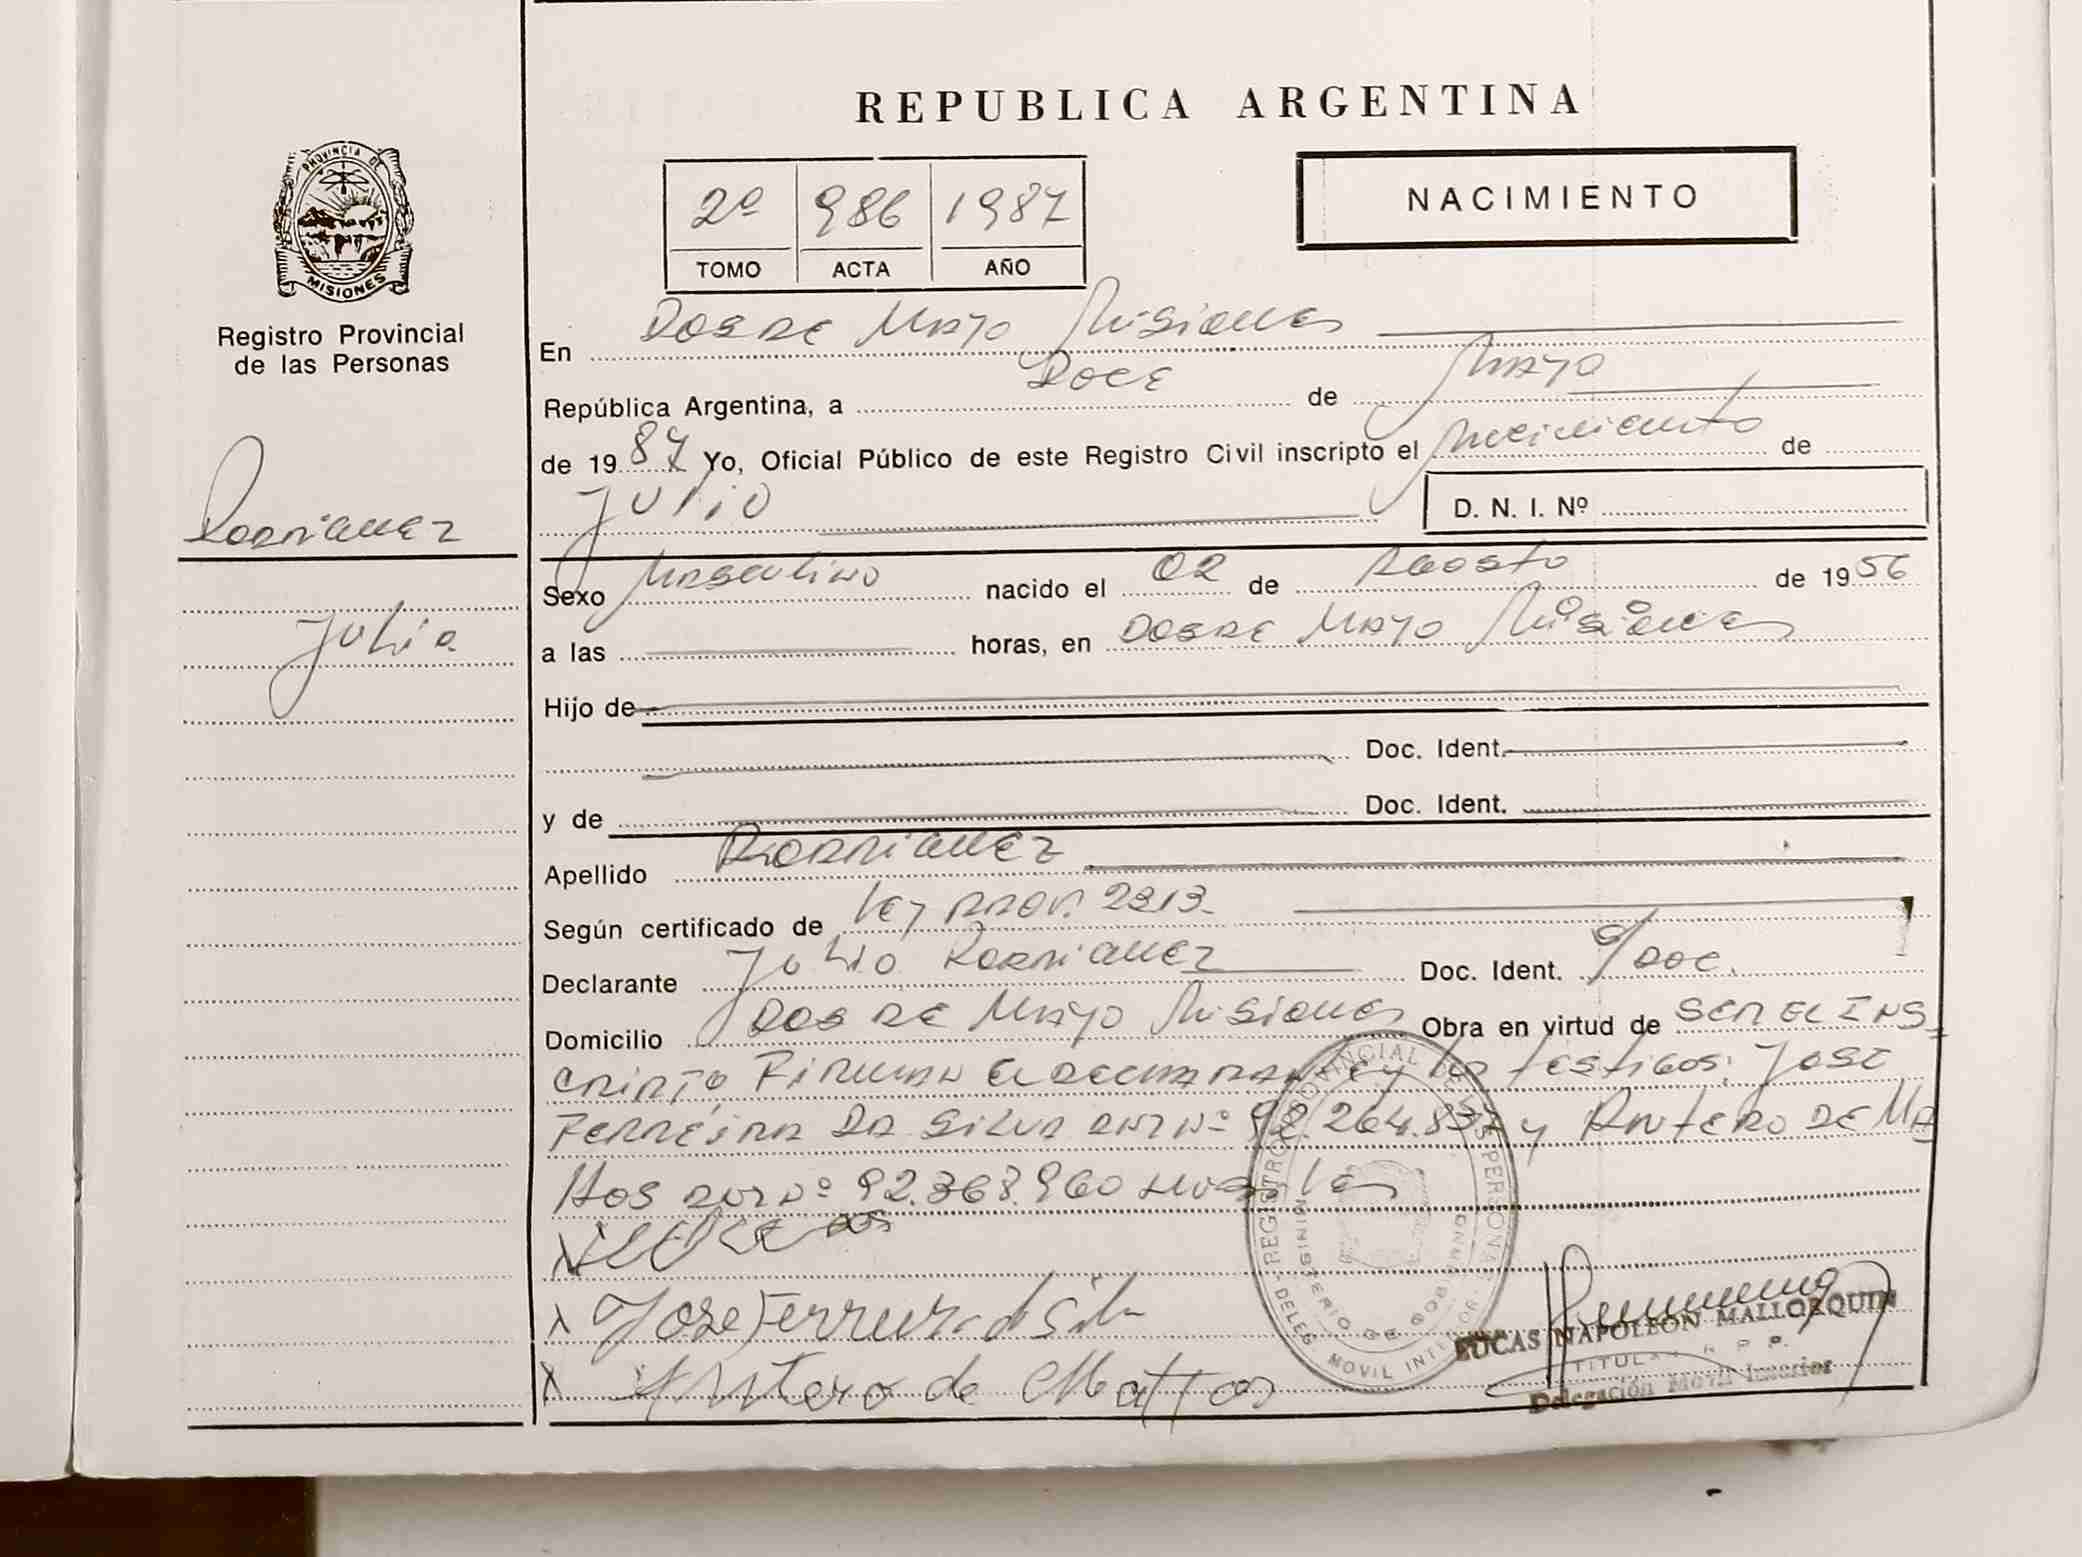 REPUBLICA ARGENTINA
PROVINCIA DE
MISIONES
Registro Provincial
de las Personas
2º 986 1987
TOMO ACTA AÑO
NACIMIENTO
En Dos de Mayo Misiones
República Argentina, a Doce de Mayo
de 1987 Yo, Oficial Público de este Registro Civil inscripto el Nacimiento de
Julio
D. N. I. Nº
Rodriguez
Julio
Sexo Masculino nacido el 02 de Agosto de 1956
a las horas, en Dos de Mayo Misiones
Hijo de
Doc. Ident.
y de Doc. Ident.
Apellido Rodriguez
Según certificado de Ley Prov. 2313
Declarante Julio Rodriguez Doc. Ident. s/Doc.
Domicilio Dos de Mayo Misiones Obra en virtud de Ser el Ins
cripto, Firman el declarante y los testigos: Jose
Ferreira Da Silva DNI Nº 92.264.837 y Antero de Ma
ttos DNI Nº 92.363.960
X
X Jose Ferreira da Silva
X Antero de Mattos
REGISTRO PROVINCIAL DE LAS PERSONAS
DELEG. MOVIL INTERIOR
MINISTERIO DE GOBIERNO
LUCAS NAPOLEON MALLORQUIN
TITULAR R. P. P.
Delegación Movil Interior